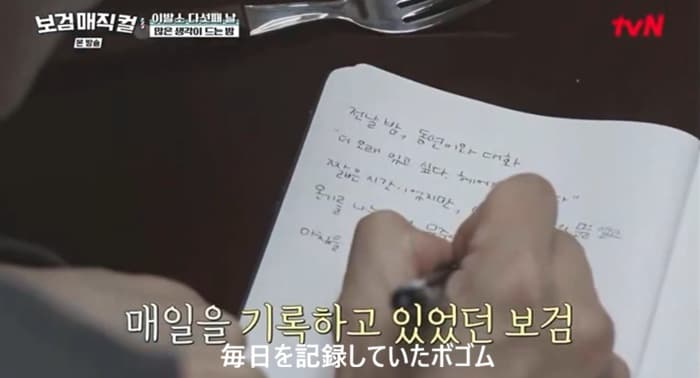 보검매직컬
본 방송
이발소 다섯째 날
많은 생각이 드는 밤
tvN
전날 밤, 동연이와 대화
"더 오래 있고 싶다. 헤어
짧은 시간이었지만,
온기를 나
아침을
매일을 기록하고 있었던 보검
毎日を記録していたボゴム